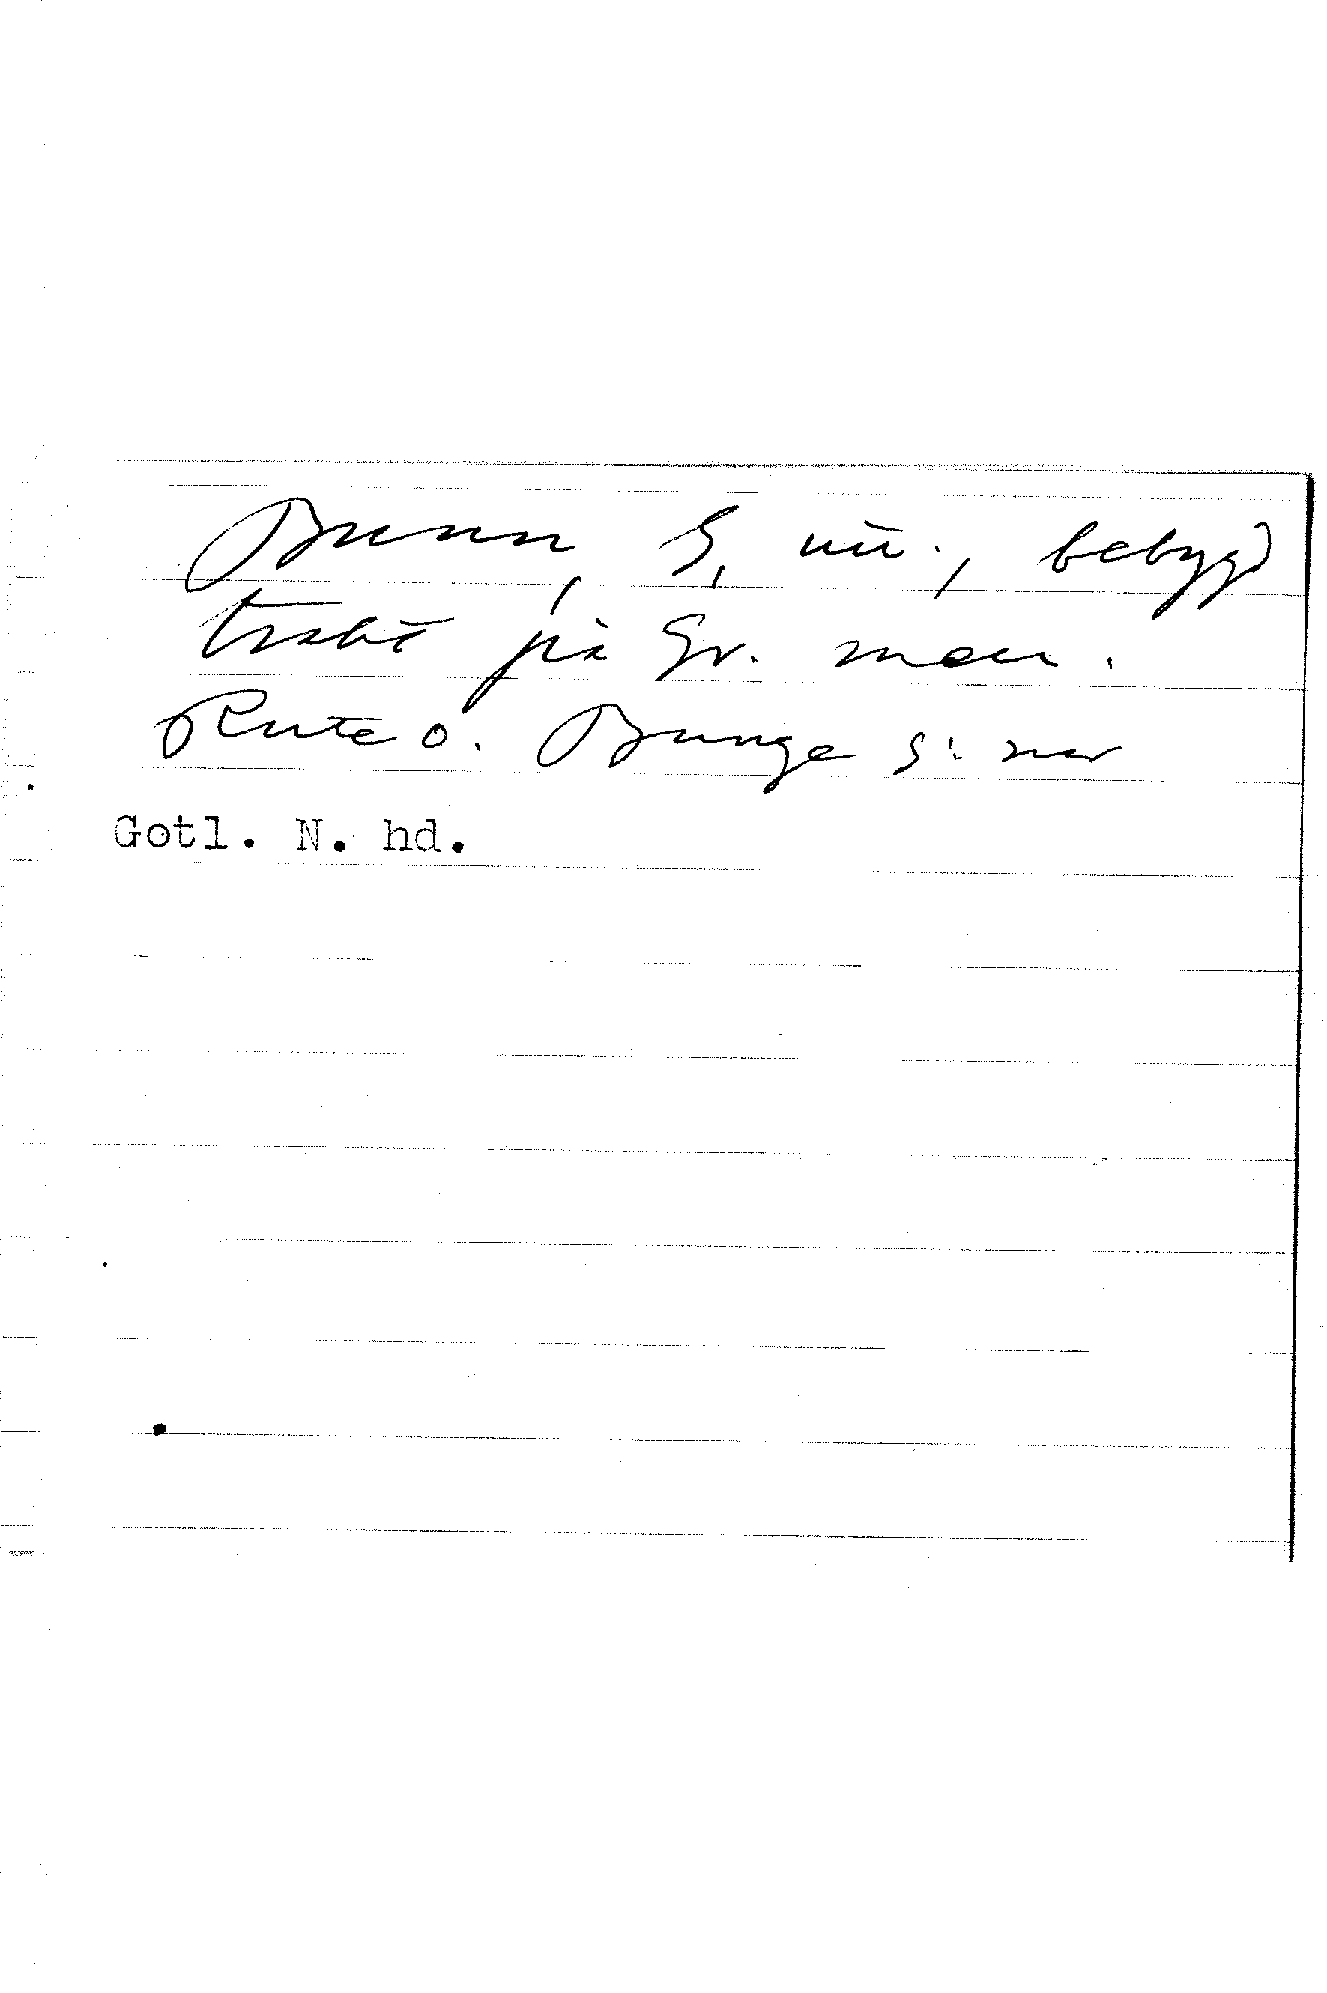 Brunn, G, nu., bebygd
trakt på Gr. men.
Rute o. Bunge s:nar
Gotl. N. hd.